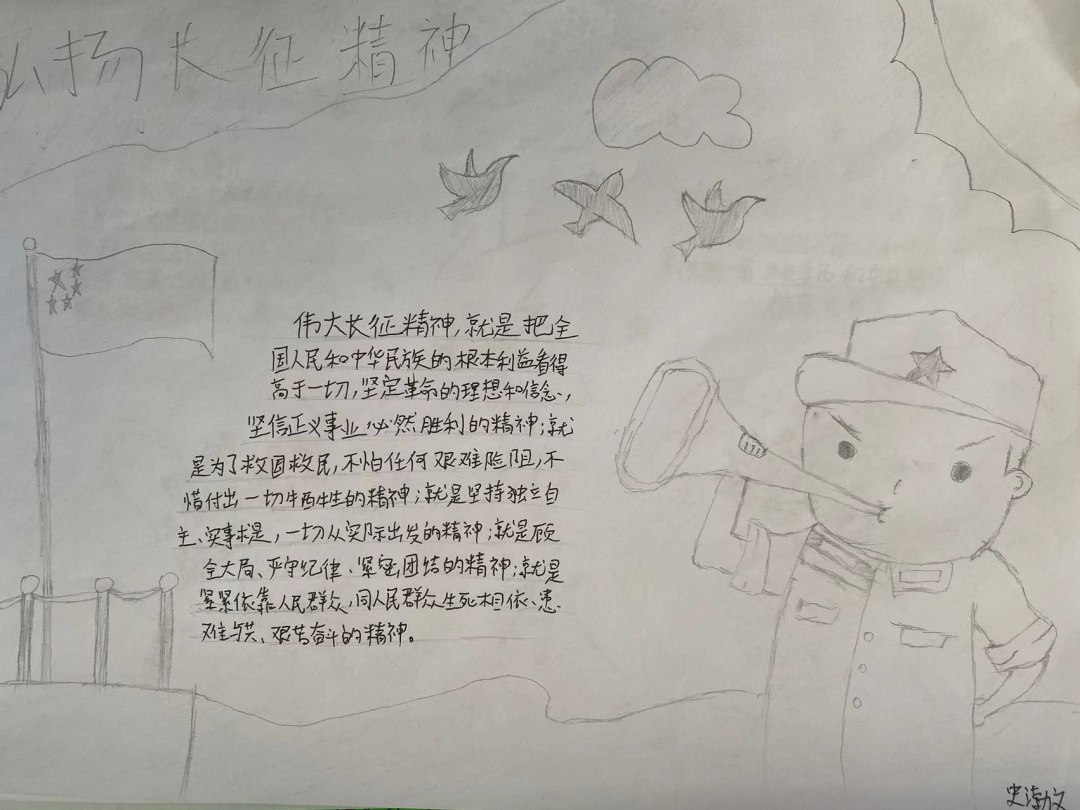 弘扬长征精神
伟大长征精神,就是把全
国人民和中华民族的根本利益看得
高于一切,坚定革命的理想和信念,
坚信正义事业必然胜利的精神;就
是为了救国救民,不怕任何艰难险阻,不
惜付出一切牺牲的精神;就是坚持独立自
主、实事求是,一切从实际出发的精神;就是顾
全大局、严守纪律、紧密团结的精神;就是
紧紧依靠人民群众,同人民群众生死相依、患
难与共、艰苦奋斗的精神。
史